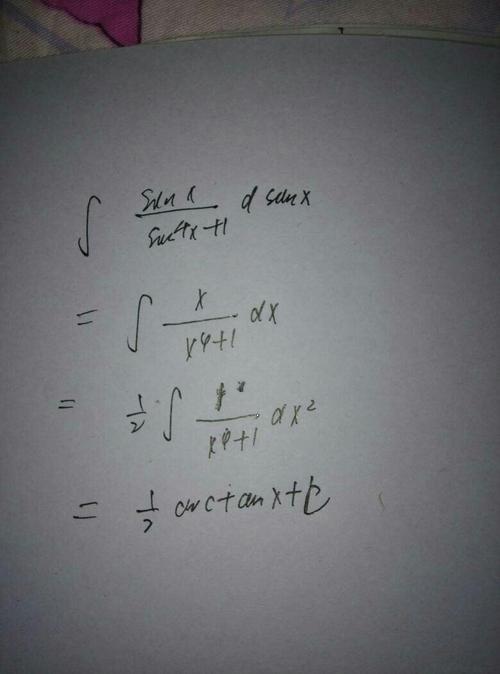 ∫ sin x / sin⁴x+1 d sin x
= ∫ x / x⁴+1 dx
= 1/2 ∫ 1 / x⁴+1 dx²
= 1/2 arctan x + C